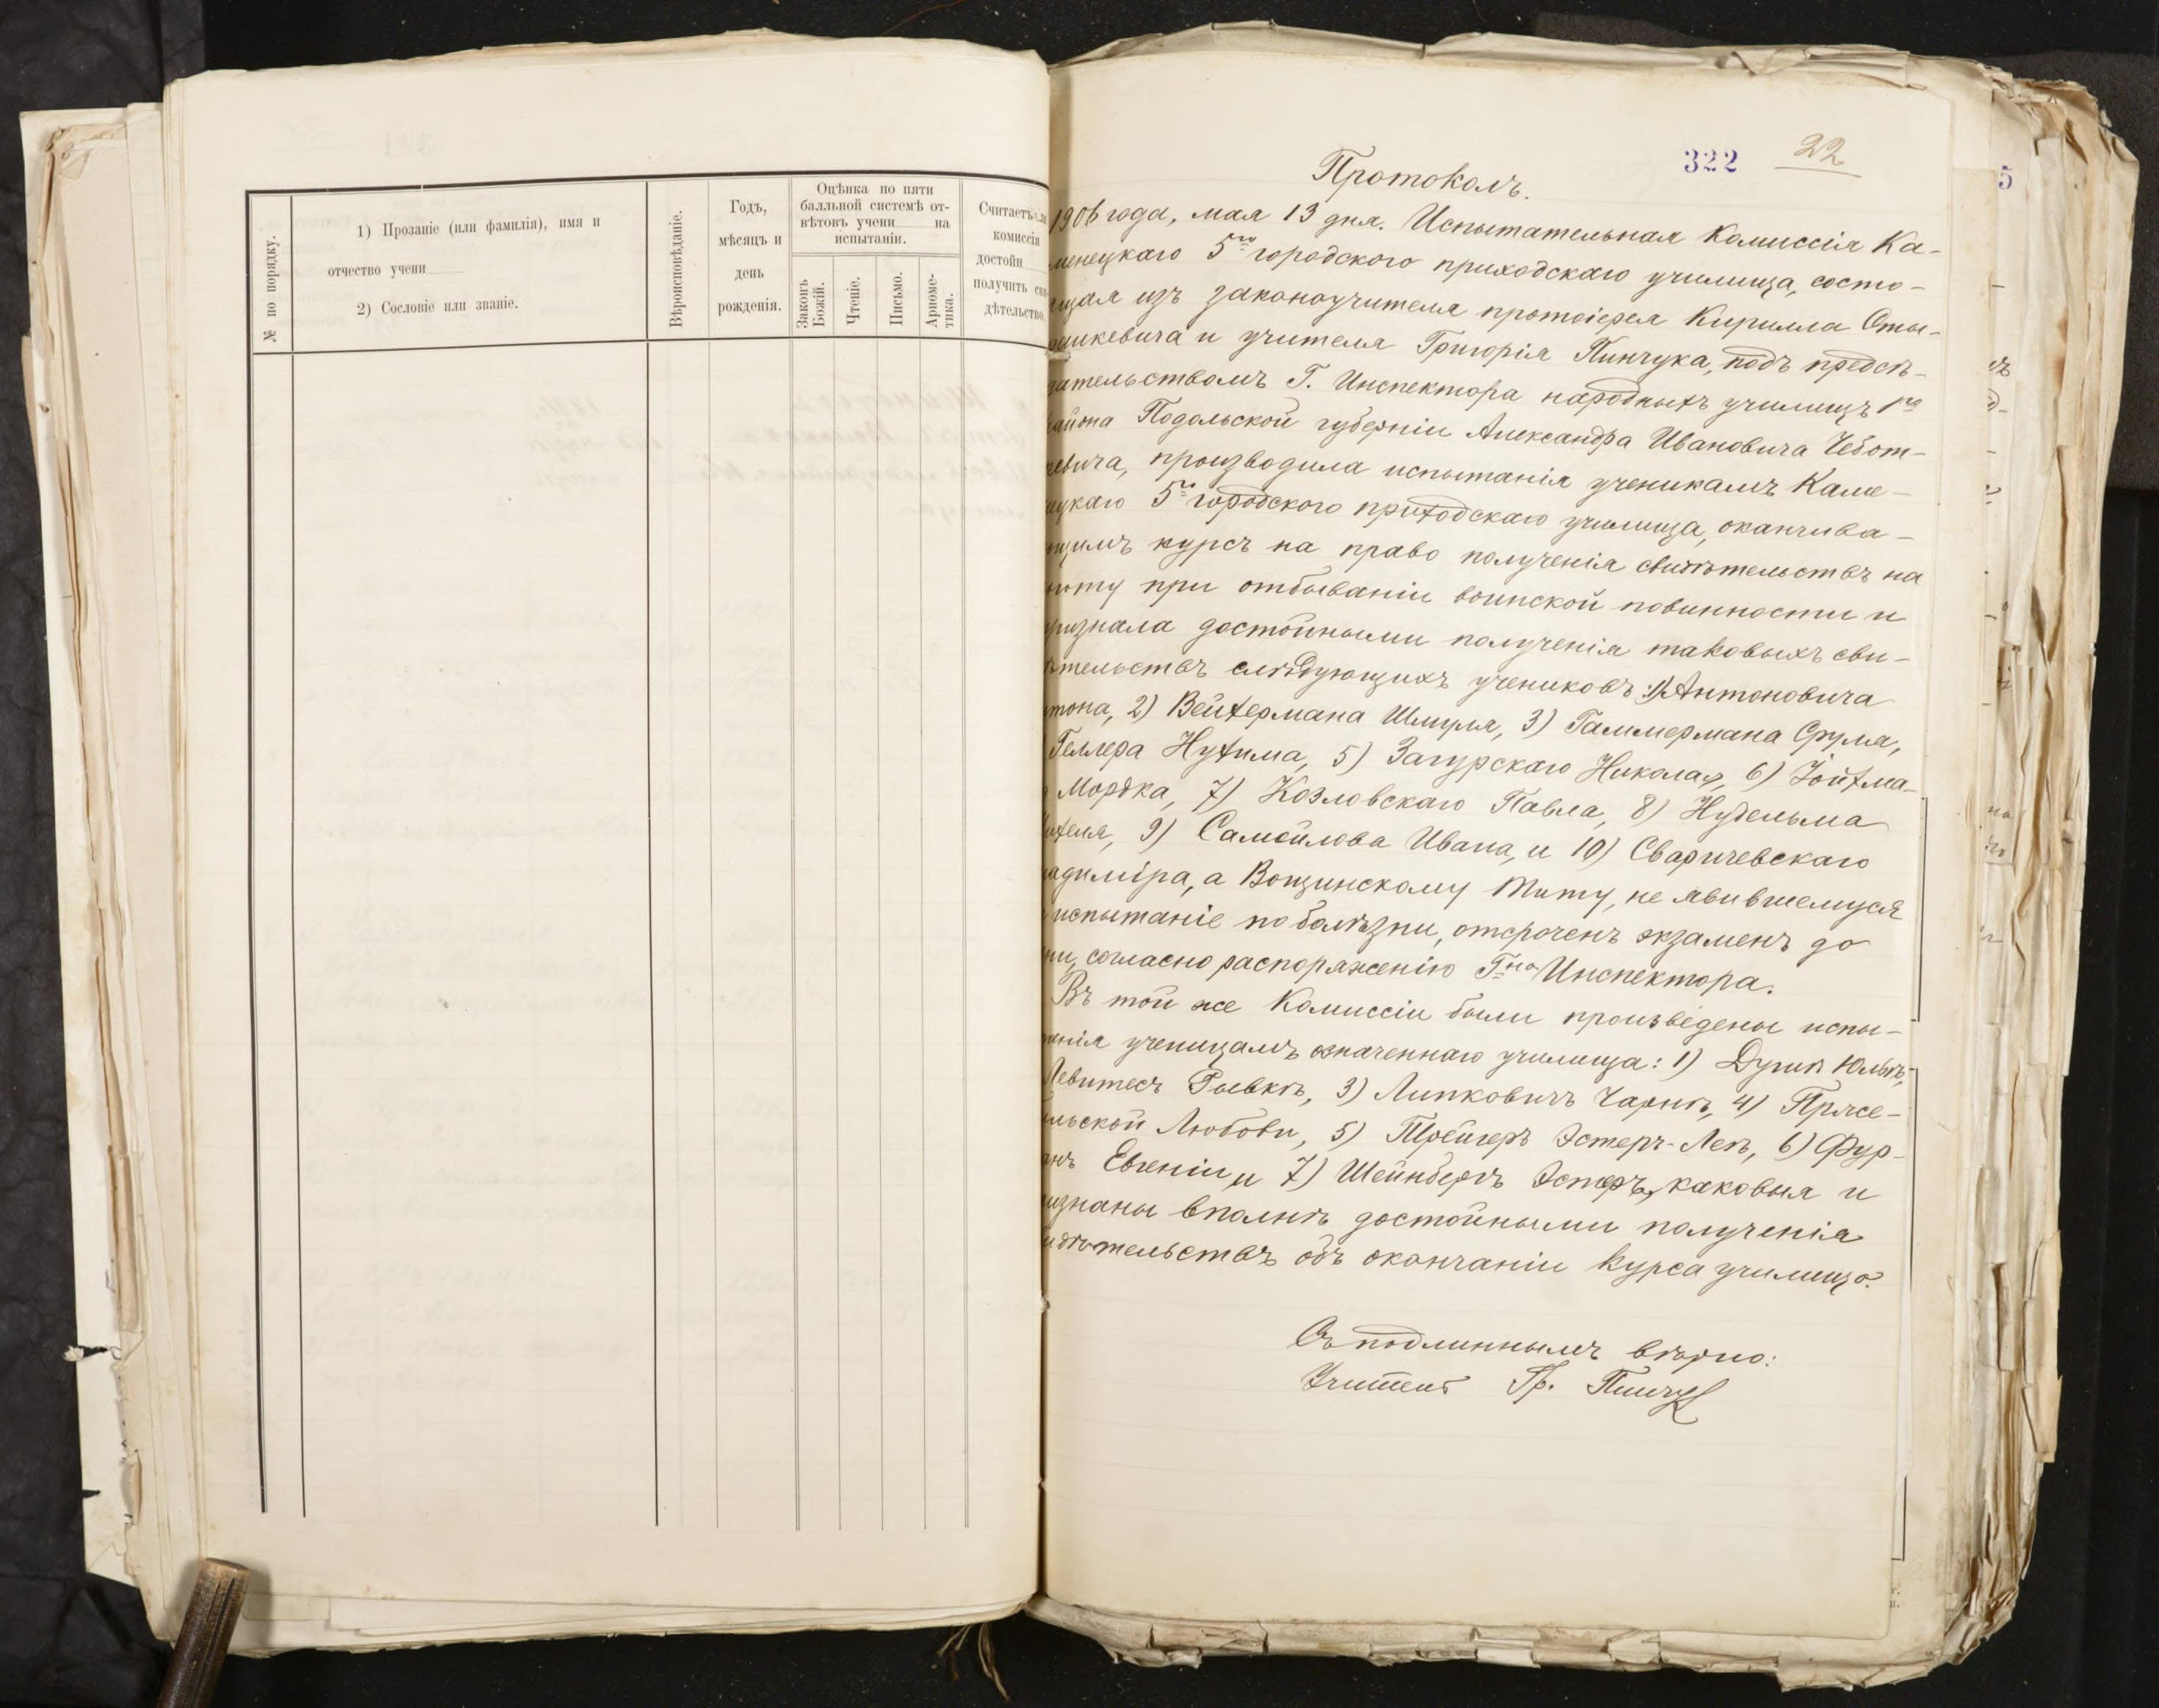 № по порядку.
1) Прозаніе (или фамилія), имя и
отчество учени
2) Сословіе или званіе.
Вѣроисповѣданіе.
Годъ,
мѣсяцъ и
день
рожденія.
Оцѣнка по пяти
балльной системѣ от-
вѣтовъ учени на
испытаніи.
Законъ
Божій.
Чтеніе.
Письмо.
Ариѳме-
тика.
Считаетъ ли
комиссія
достойн
получить сви-
дѣтельство.
322 22
Протоколъ.
1906 года, мая 13 дня. Испытательная Комиссія Ка-
менецкаго 5го городского приходскаго училища, состо-
ящая изъ законоучителя протоіерея Кирилла Сты-
ранкевича и учителя Григорія Пинчука, подъ предсѣ-
дательствомъ Г. Инспектора народныхъ училищъ 1го
района Подольской губерніи Александра Ивановича Чебот-
ревича, производила испытанія ученикамъ Каме-
нецкаго 5го городского приходскаго училища, оканчива-
ющимъ курсъ на право полученія свидѣтельствъ на
льготу при отбываніи воинской повинности и
признала достойными полученія таковыхъ сви-
дѣтельствъ слѣдующихъ учениковъ: 1) Антоновича
Антона, 2) Вейхермана Шмуля, 3) Гаммермана Срула,
Геллера Нухима, 5) Загурскаго Николая, 6) Зойхма-
Мордка, 7) Козловскаго Павла, 8) Нудельма
хеля, 9) Самойлова Ивана, и 10) Сваричевскаго
адиміра, а Вощинскому Титу, не явившемуся
испытаніе по болѣзни, отсроченъ экзаменъ до
ни, согласно распоряженію Гна Инспектора.
Въ той же Комиссіи были произведены испы-
танія ученицамъ означеннаго училища: 1) Дунѣ Юльѣ,
Левитесъ Рывкѣ, 3) Липковичъ Чарнѣ, 4) Прясе-
льской Любови, 5) Трейгеръ Эстеръ-Леѣ, 6) Фур-
анъ Евгеніи и 7) Шейнбергъ Эстеръ, каковыя и
изнаны вполнѣ достойными полученія
идѣтельствъ объ окончаніи курса училища.
Съ подлиннымъ вѣрно:
Учитель Гр. Пинчук
5